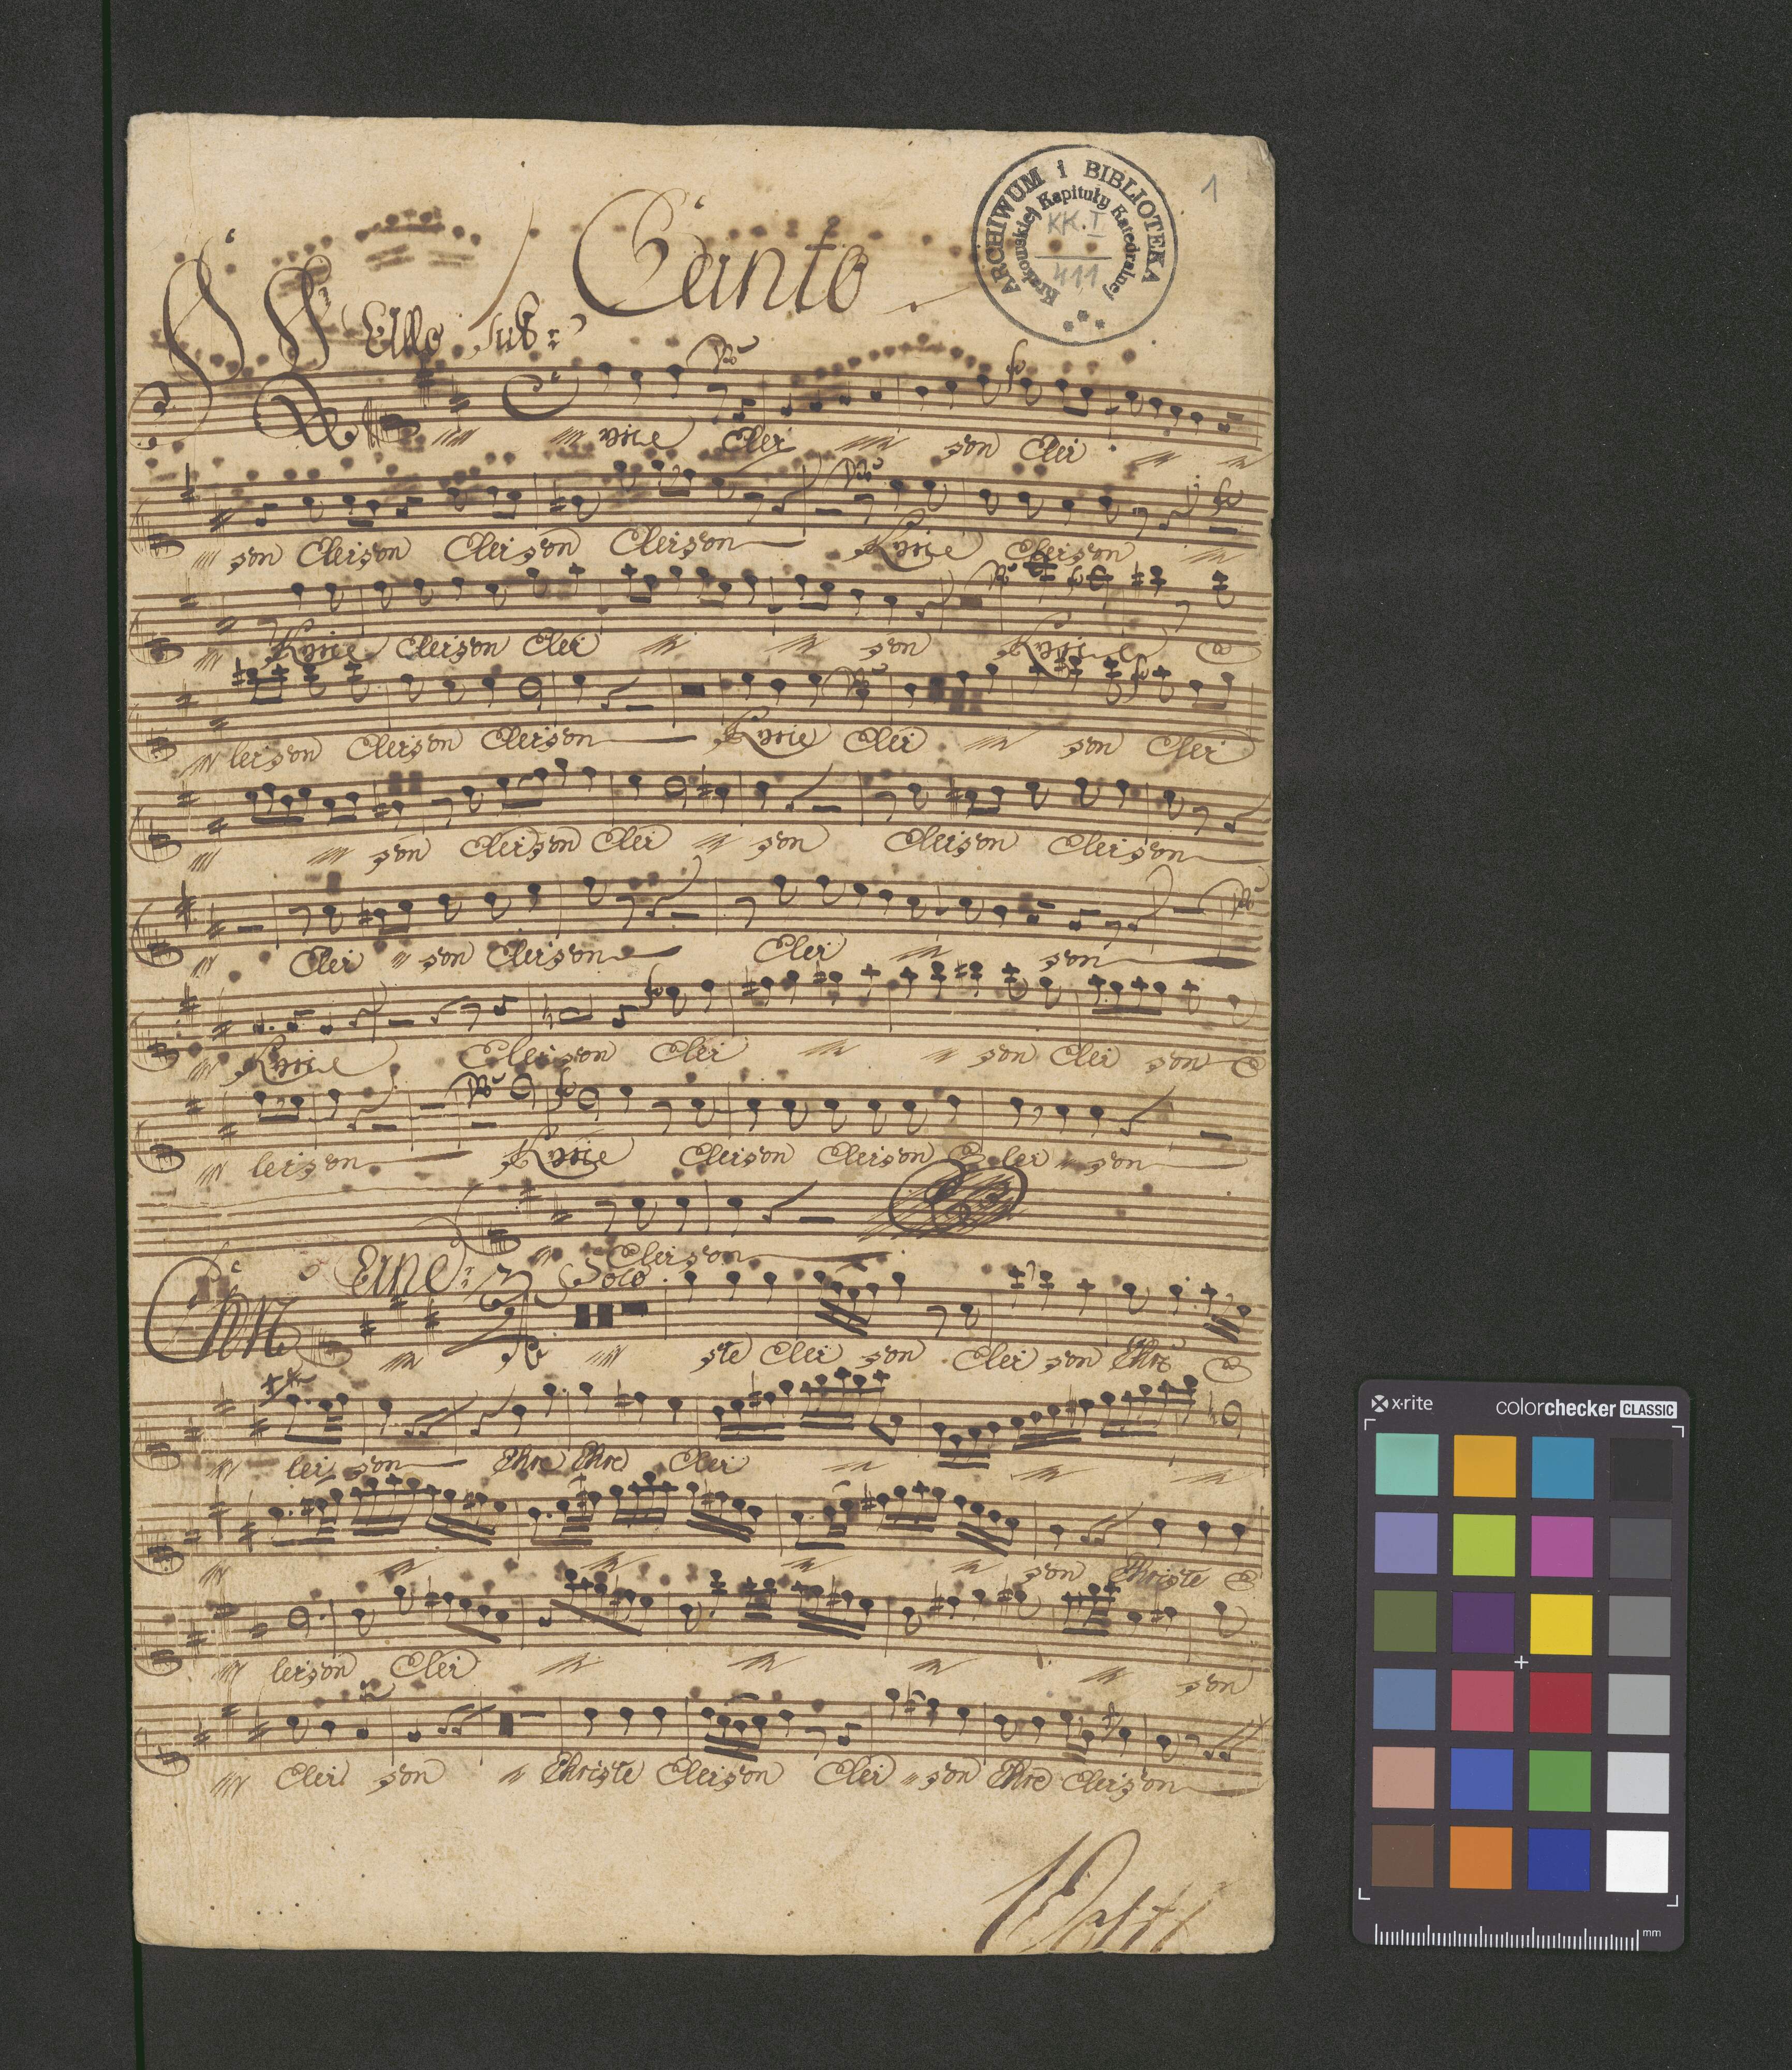 Canto
1
ARCHIWUM i BIBLIOTEKA
Krakowskiej Kapituły Katedralnej
KK. I
411
rie Elei son Elei
son Eleison Eleison Eleison Kyrie Eleison
Kyrie Eleison Elei son Kyrie E
leison Eleison Eleison Kyrie Elei son Elei
son Eleison Elei son Eleison Eleison
Elei son Eleison Elei son
Kyrie Eleison Elei son Elei son E
leison Kyrie Eleison Eleison E lei son
Eleison
Solo
ste Elei son Elei son Chre E
lei son Chre Chre Elei
son Christe E
leison Elei son
Elei son Christe Eleison Elei son Chre Eleison
x-rite
colorchecker CLASSIC
mm